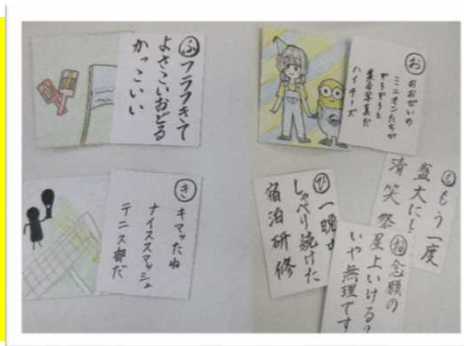 ふ
フラフきて
よさこいおどる
かっこいい
お
おおぜいの
ミニオンたちが
ぞろぞろと
ハイチーズ
き
キマッたね
ナイススマッシュ
テニス部だ
ひ
一晩
しゃべり続けた
宿泊研修
もう一度
盛大に
清笑祭
念願の
屋上いける?
いや無理です